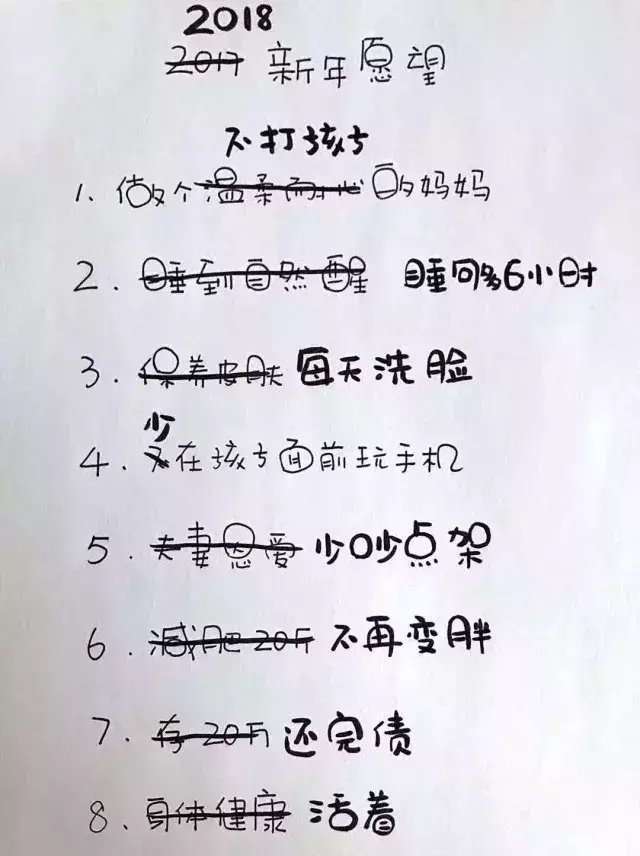 2018
2017 新年愿望
不打孩子
1. 做个温柔耐心的妈妈
2. 睡到自然醒 睡间多6小时
3. 保养皮肤 每天洗脸
少
4. 不在孩子面前玩手机
5. 夫妻恩爱 少吵点架
6. 减肥20斤 不再变胖
7. 存20万 还完债
8. 身体健康 活着